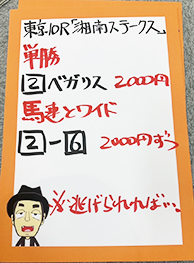 東京10R「湘南ステークス」
単勝
2 ベガリス 2000円
馬連とワイド
2-6 2000円ずつ
※逃げられれば…。